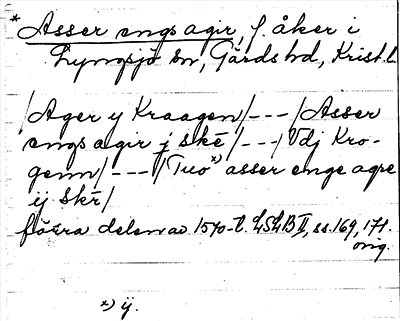 * Asser engs agir, f. åker i
Lyngsjö sn, Gärds hd, Krist. l.
/Ager y Kraagen/---/Asser
engs agir j skē/---/Vdj Kro-
genn/---/Tuo *) asser enge agre
ij Skē/
förra delen av 150-t. LSLB II, ss. 169, 171.
orig.
*) ij.